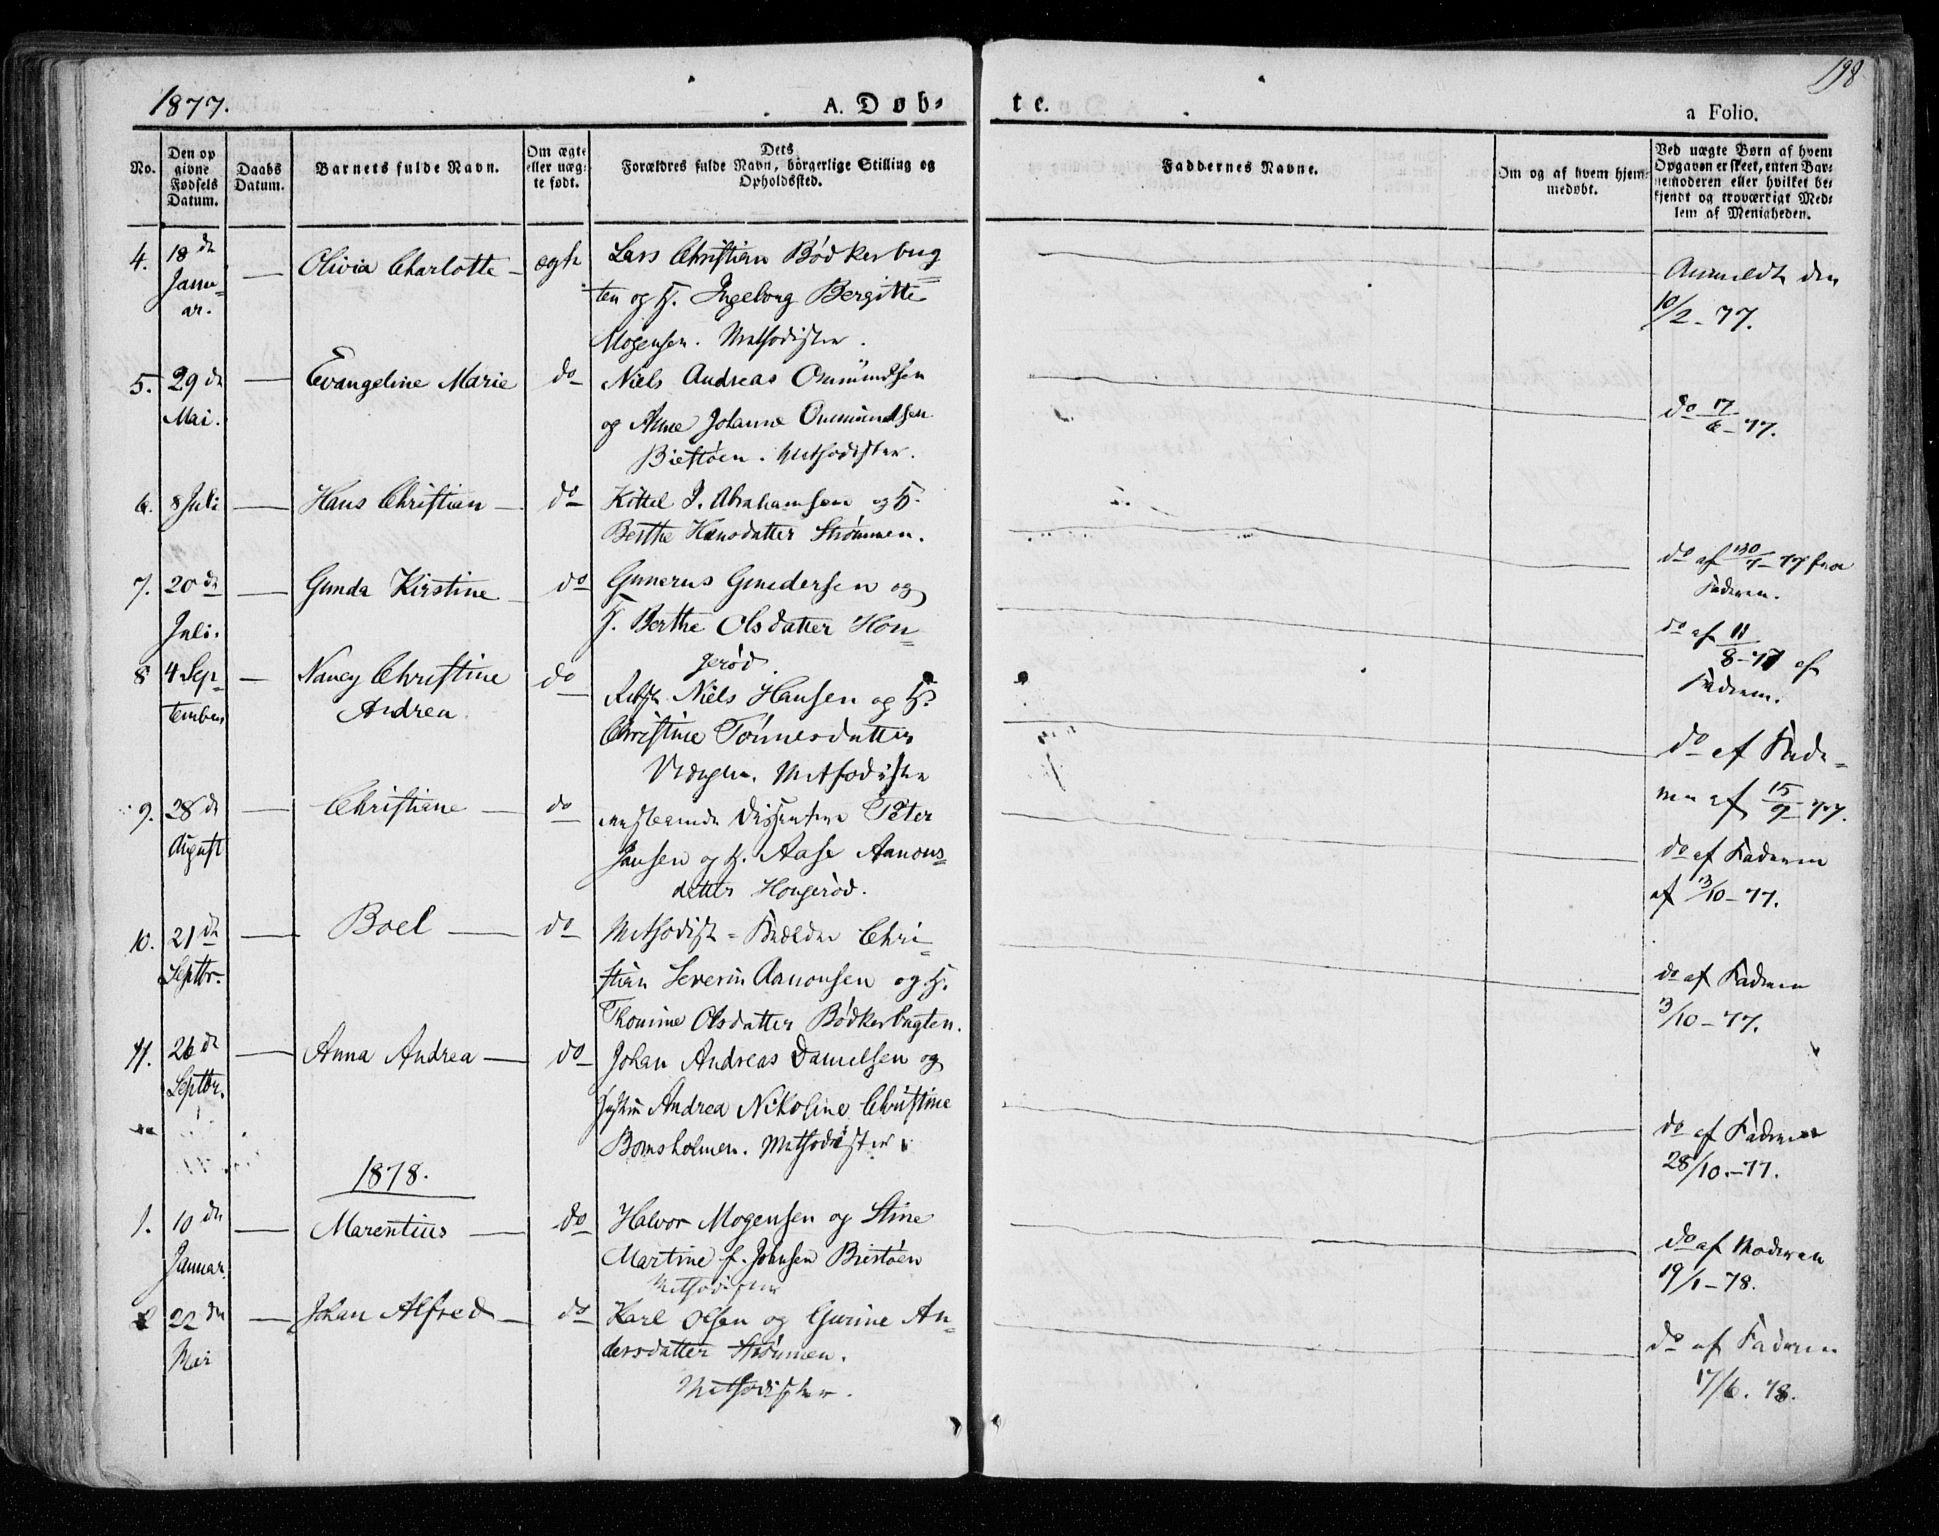 1877.
A. Døb-
te.
198
a Folio.
No.
Den op
givne
Fødsels
Datum.
Daabs
Datum.
Barnets fulde Navn.
Om ægte
eller uæg-
te født.
Dets
Forældres fulde Navn, börgerlige Stilling og
Opholdssted.
Faddernes Navne.
Om og af hvem hjem-
medøbt.
Ved uægte Børn af hvem
Opgaven er skeet, enten Bar-
nemoderen eller hvilket be-
kjendt og troværdigt Med-
lem af Menigheden.
4. 18de Olivia Charlotte ægte Lars Christian Bödkerbug
Janu-
ar.
ten og H. Ingeborg Bergitte
Mogensen. Methodister.
Anmeldt den
10/2-77.
5. 29de Evangeline Marie do Niels Andreas Ommundsen
Mai. og Anne Johanne Ommundsen
Biestøen. Methodister.
do 17/6-77.
6. 8 Juli Hans Christian do Kittel J. Abrahamsen og H.
Berthe Hansdatter Strømmen.
do af 30/7-77 fra
Faderen.
7. 20de Gunda Kirstine do Gunerus Gundersen og
Juli. H. Berthe Olsdatter Hon-
gerød.
do af 11/8-77 af
Faderen.
8 4 Sep- Nancy Christine do Niels Hansen og H.
tember Andrea Christine Tønnesdatter
Methodister
do af Fade-
ren af 15/9-77.
9. 28de Christiane do Dissentere Peter
August Jansen og H. Aase Aanons-
datter Hongerød.
do af Faderen
af 13/10-77.
10. 21de Boel do Methodist-Forældre Chri-
Septbr. stian Severin Aanonsen og H.
Thomine Olsdatter Bödkerbugten.
do af Faderen
3/10-77.
11. 26de Anna Andrea do Johan Andreas Danielsen og
Septbr. Hustru Andrea Nikoline Christine
Bomsholmen. Methodister
do af Faderen
28/10-77.
1878.
1. 10de Marentius do Halvor Mogensen og Stine
Januar. Martine f. Johnsen Biestøen
Methodister
do af Moderen
19/1-78.
2 22de Johan Alfred do Karl Olsen og Gurine An-
Mai dersdatter Strømmen.
Methodister.
do af Faderen
17/6. 78.